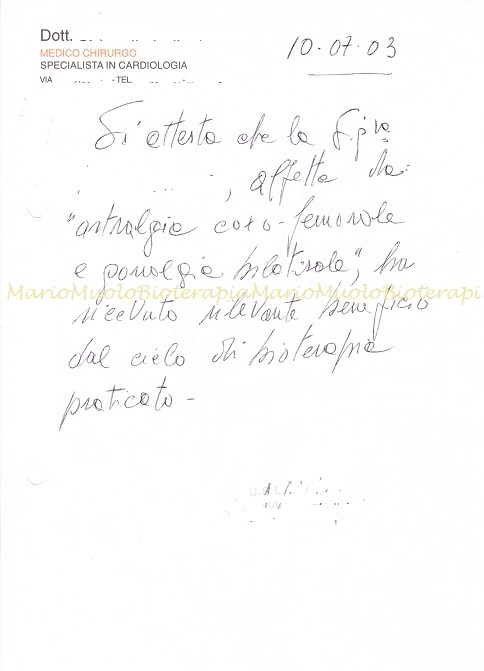 Dott.
MEDICO CHIRURGO
SPECIALISTA IN CARDIOLOGIA
VIA - TEL
10.07.03
Si attesta che la Sig.ra
, affetta da:
"artralgia coxo-femorale
e gonalgia bilaterale", ha
MarioMuoloBioterapiaMarioMuoloBioterapi
ricevuto rilevante beneficio
dal ciclo di bioterapia
praticato -